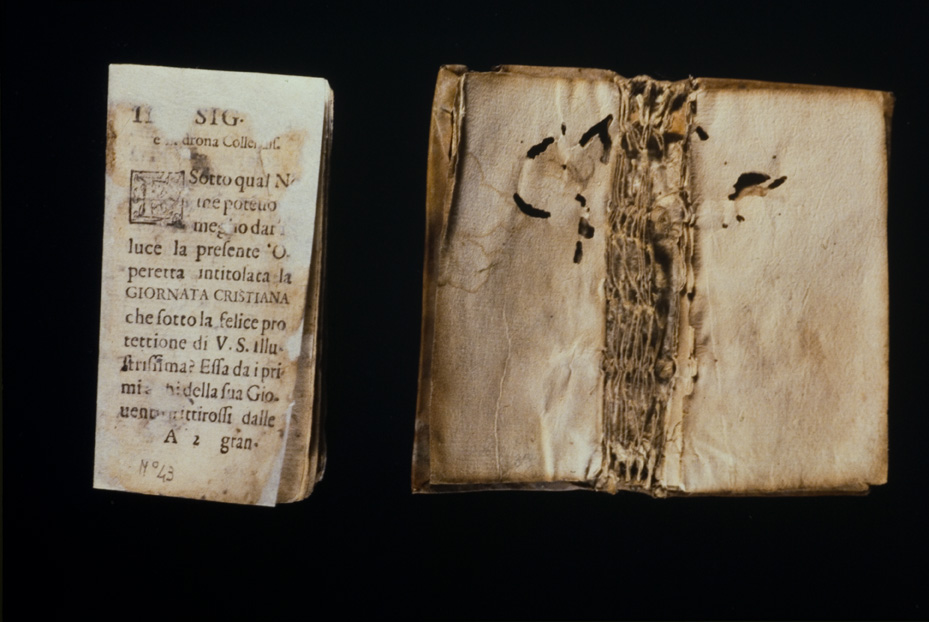 SIG.
drona
Sotto qual
me potetto
meglio dar
luce la preſente O-
peretta intitolata la
GIORNATA CRISTIANA
che ſotto la felice pro
tettione di V. S. Illu-
ſtriſſima? Eſſa da i pri-
mi della ſua Gio-
dalle
A 2 gran-
Nº 43